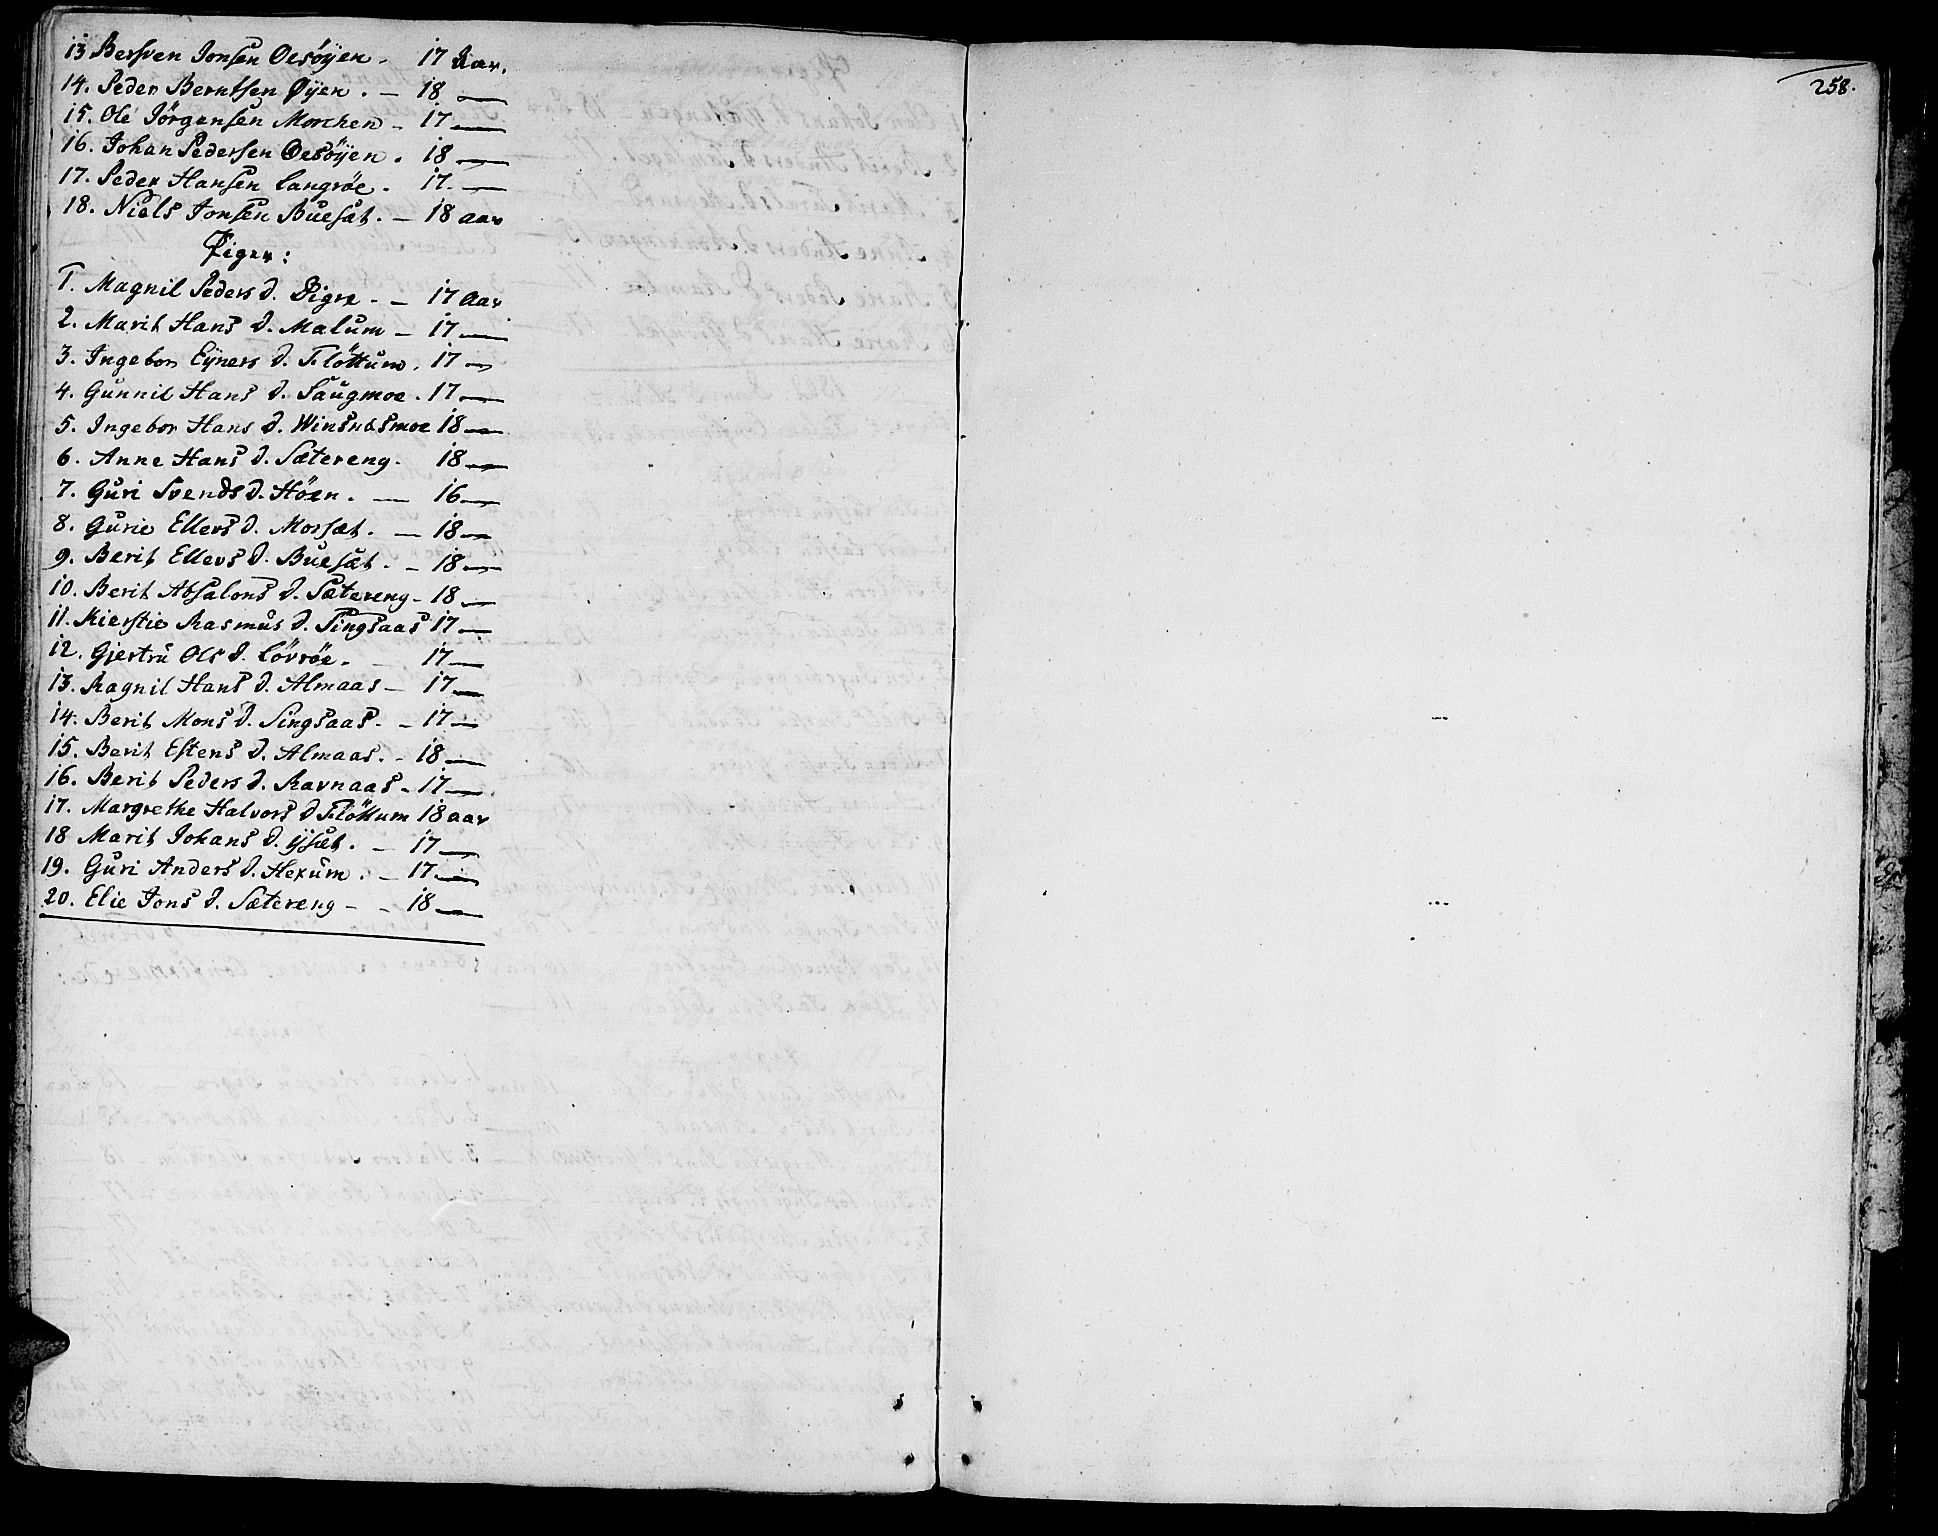 13 Bersven Jonsen Oesöyen - 17 Aar.
14. Peder Berntsen Øyen. - 18 —
15. Ole Jörgensen Morchen - 17 —
16. Johan Pedersen Oesöyen. 18 —
17. Peder Hansen Langröe. 17. —
18. Niels Jonsen Buesæt. - 18 aar
Piger:
1. Magnil Peders d. Digre. - 17 Aar
2. Marit Hans d. Malum - 17 —
3. Ingebor Eyners d. Flöttum. 17 —
4. Gunnil Hans d. Haugmoe. 17 —
5. Ingebor Hans d. Winsnesmoe 18 —
6. Anne Hans d. Sætereng. 18 —
7. Guri Svends d. Höen. — 16 —
8. Gurie Ellevs d. Morsæt. — 18 —
9. Berit Ellevs d. Buesæt. - 18 —
10. Berit Absalons d. Sætereng - 18 —
11. Kierstie Rasmus d. Singsaas 17 —
12. Gjertru Ols d. Lövröe - — 17 —
13. Ragnil Hans d. Almaas - 17 —
14. Berit Mons d. Singsaas. - 17 —
15. Berit Estens d. Almaas. - 18 —
16. Berit Peders d. Ravnaas - 17 —
17. Margrethe Halvors d Flöttum 18 aar
18 Marit Johans d. Ysæt. - 17 —
19. Guri Anders d. Hexum. - 17 —
20. Elie Jons d. Sætereng - - 18 —
258.